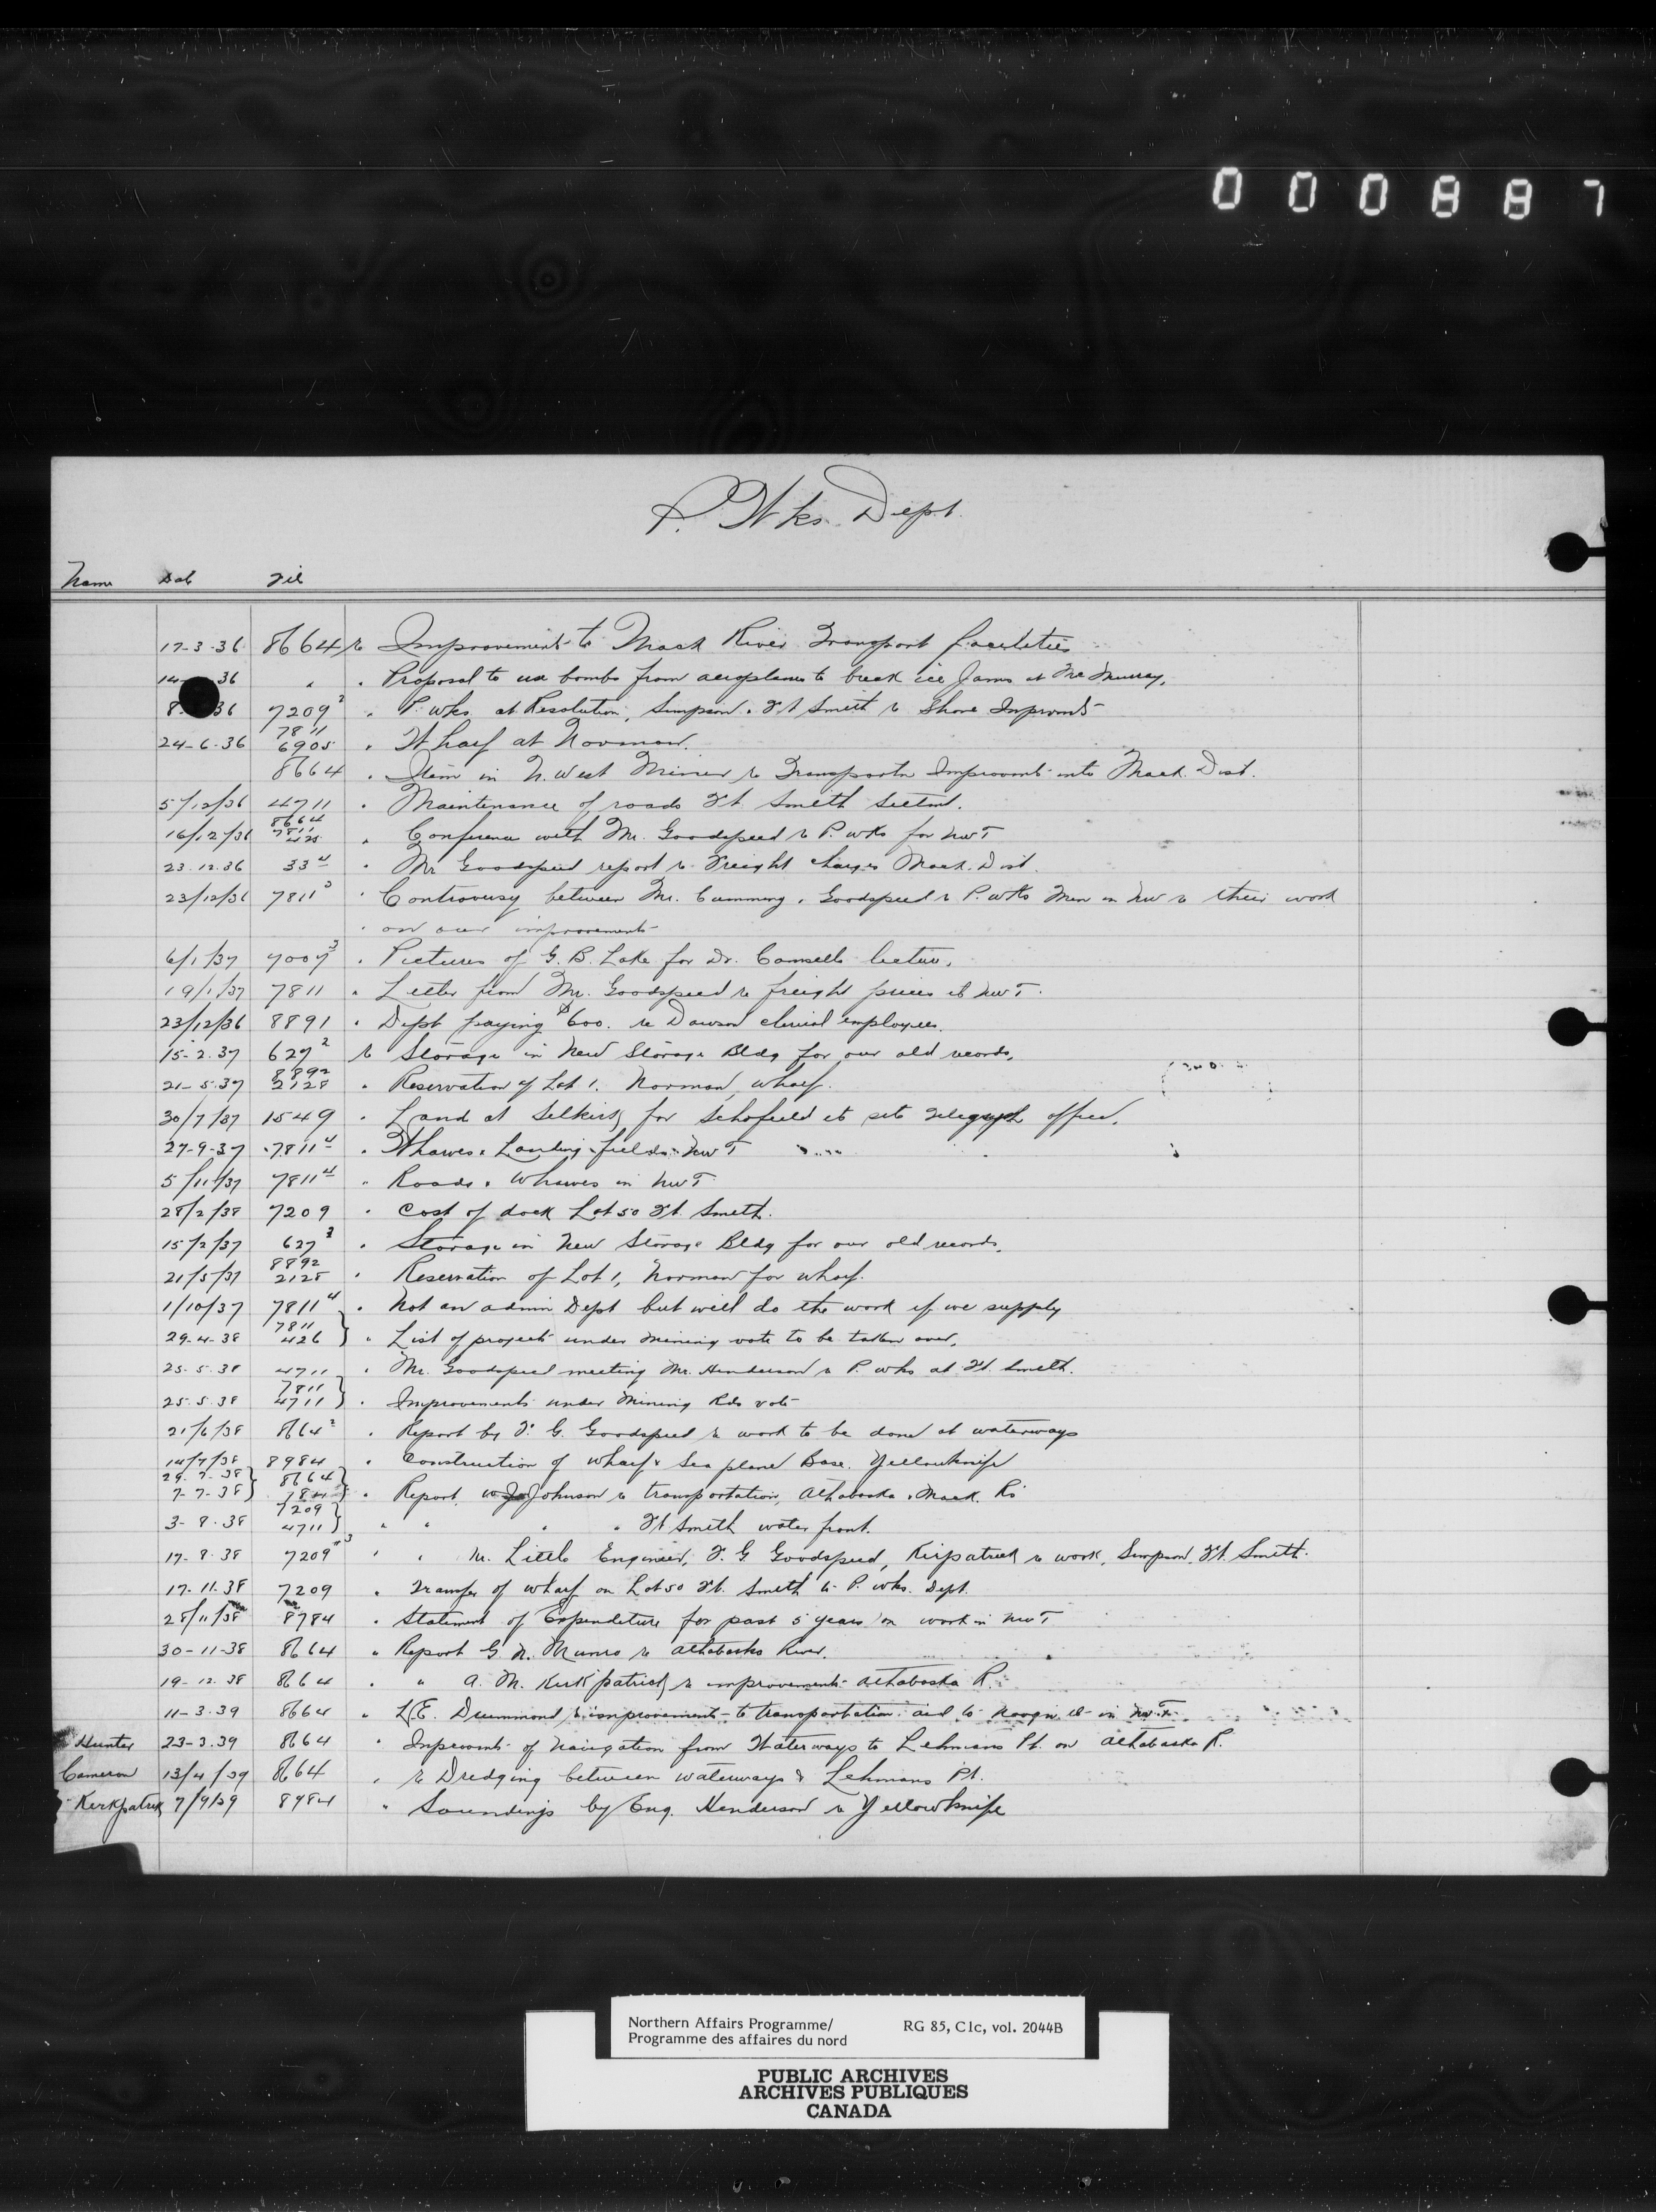 000887
P. Wks. Dept.
Name Dat Fil
17-3-36 8664 re Improvement to Mack River Transport facilities
14- 36 " " Proposal to use bombs from aeroplanes to break ice Jams at McMurray.
8- 36 7209² " P. wks. at Resolution, Simpson & Ft Smith re Shore Improvmts
7811
24-6-36 6905 " Wharf at Norman.
8664 " Item in N. West Miner re Transportn Improvmts into Mack. Dist.
5/12/36 4711 " Maintenance of roads Ft. Smith Section.
8664
7811
16/12/36 425 " Conference with Mr. Goodspeed re P. wks for NWT
23.12.36 33⁴ " Mr Goodspeed report re Freight charges Mack. Dist.
23/12/36 7811³ " Controversy between Mr. Cumming & Goodspeed re P. wks Men in NW re their work
" on our improvements
6/1/37 7007³ " Pictures of G. B. Lake for Dr. Camsells lecture.
19/1/37 7811 " Letter from Mr. Goodspeed re freight prices et NWT.
23/12/36 8891 " Dept paying $600. re Dawson clerical employees.
15-2-37 627² re Storage in New Storage Bldg for our old records.
8892
21-5-37 2128 " Reservation of Lot 1. Norman, wharf.
30/7/37 1549 " Land at Selkirk for Schofield et sets Telegraph office.
27-9-37 7811⁴ " Wharves & Landing fields NWT
5/11/37 7811⁴ " Roads & Wharves in NWT
28/2/38 7209 " Cost of dock Lot 50 Ft. Smith.
15/2/37 627² " Storage in New Storage Bldg for our old records.
8892
21/5/37 2128 " Reservation of Lot 1, Norman for wharf.
1/10/37 7811⁴ " Not an admin Dept but will do the work if we supply
7811
29.4.38 426 } " List of projects under mining vote to be taken over.
25.5.38 4711 " Mr. Goodspeed meeting Mr. Henderson re P. wks at Ft. Smith.
7811
25.5.38 4711 } " Improvements under Mining Rds vote
21/6/38 8664² " Report by F. G. Goodspeed re work to be done at waterways
14/7/38 8984 " Construction of Wharf & Sea plane Base. Yellowknife
29.7.38 } 8664 }
7-7-38 } 784 } " Report, W. Johnson re transportation, Athabaska & Mack. Rs
7209 }
3-8-38 4711 } " " " " Ft Smith water front.
17-8-38 7209³ " " M. Little Engineer, F. G Goodspeed, Kirpatrick re work, Simpson, Ft. Smith.
17-11-38 7209 " Transfer of wharf on Lot 50 Ft. Smith to P. wks. Dept.
28/11/38 8784 " Statement of Expenditure for past 5 years on work in NWT
30-11-38 8664 " Report G. N. Munro re Athabaska River.
19-12-38 8664 " " A. M. Kirkpatrick re improvements Athabaska R.
11-3-39 8664 " L E. Drummond re improvements to transportation aid to navign et in NWT.
Hunter 23-3.39 8664 " Improvmts of Navigation from Waterways to Lehmans Pt. on Athabaska R.
Cameron 13/4/39 8664 " re Dredging between waterways & Lehmans Pt.
Kirkpatrick 7/9/39 8984 " Soundings by Eng. Henderson re Yellowknife
Northern Affairs Programme/ RG 85, C1c, vol. 2044B
Programme des affaires du nord
PUBLIC ARCHIVES
ARCHIVES PUBLIQUES
CANADA